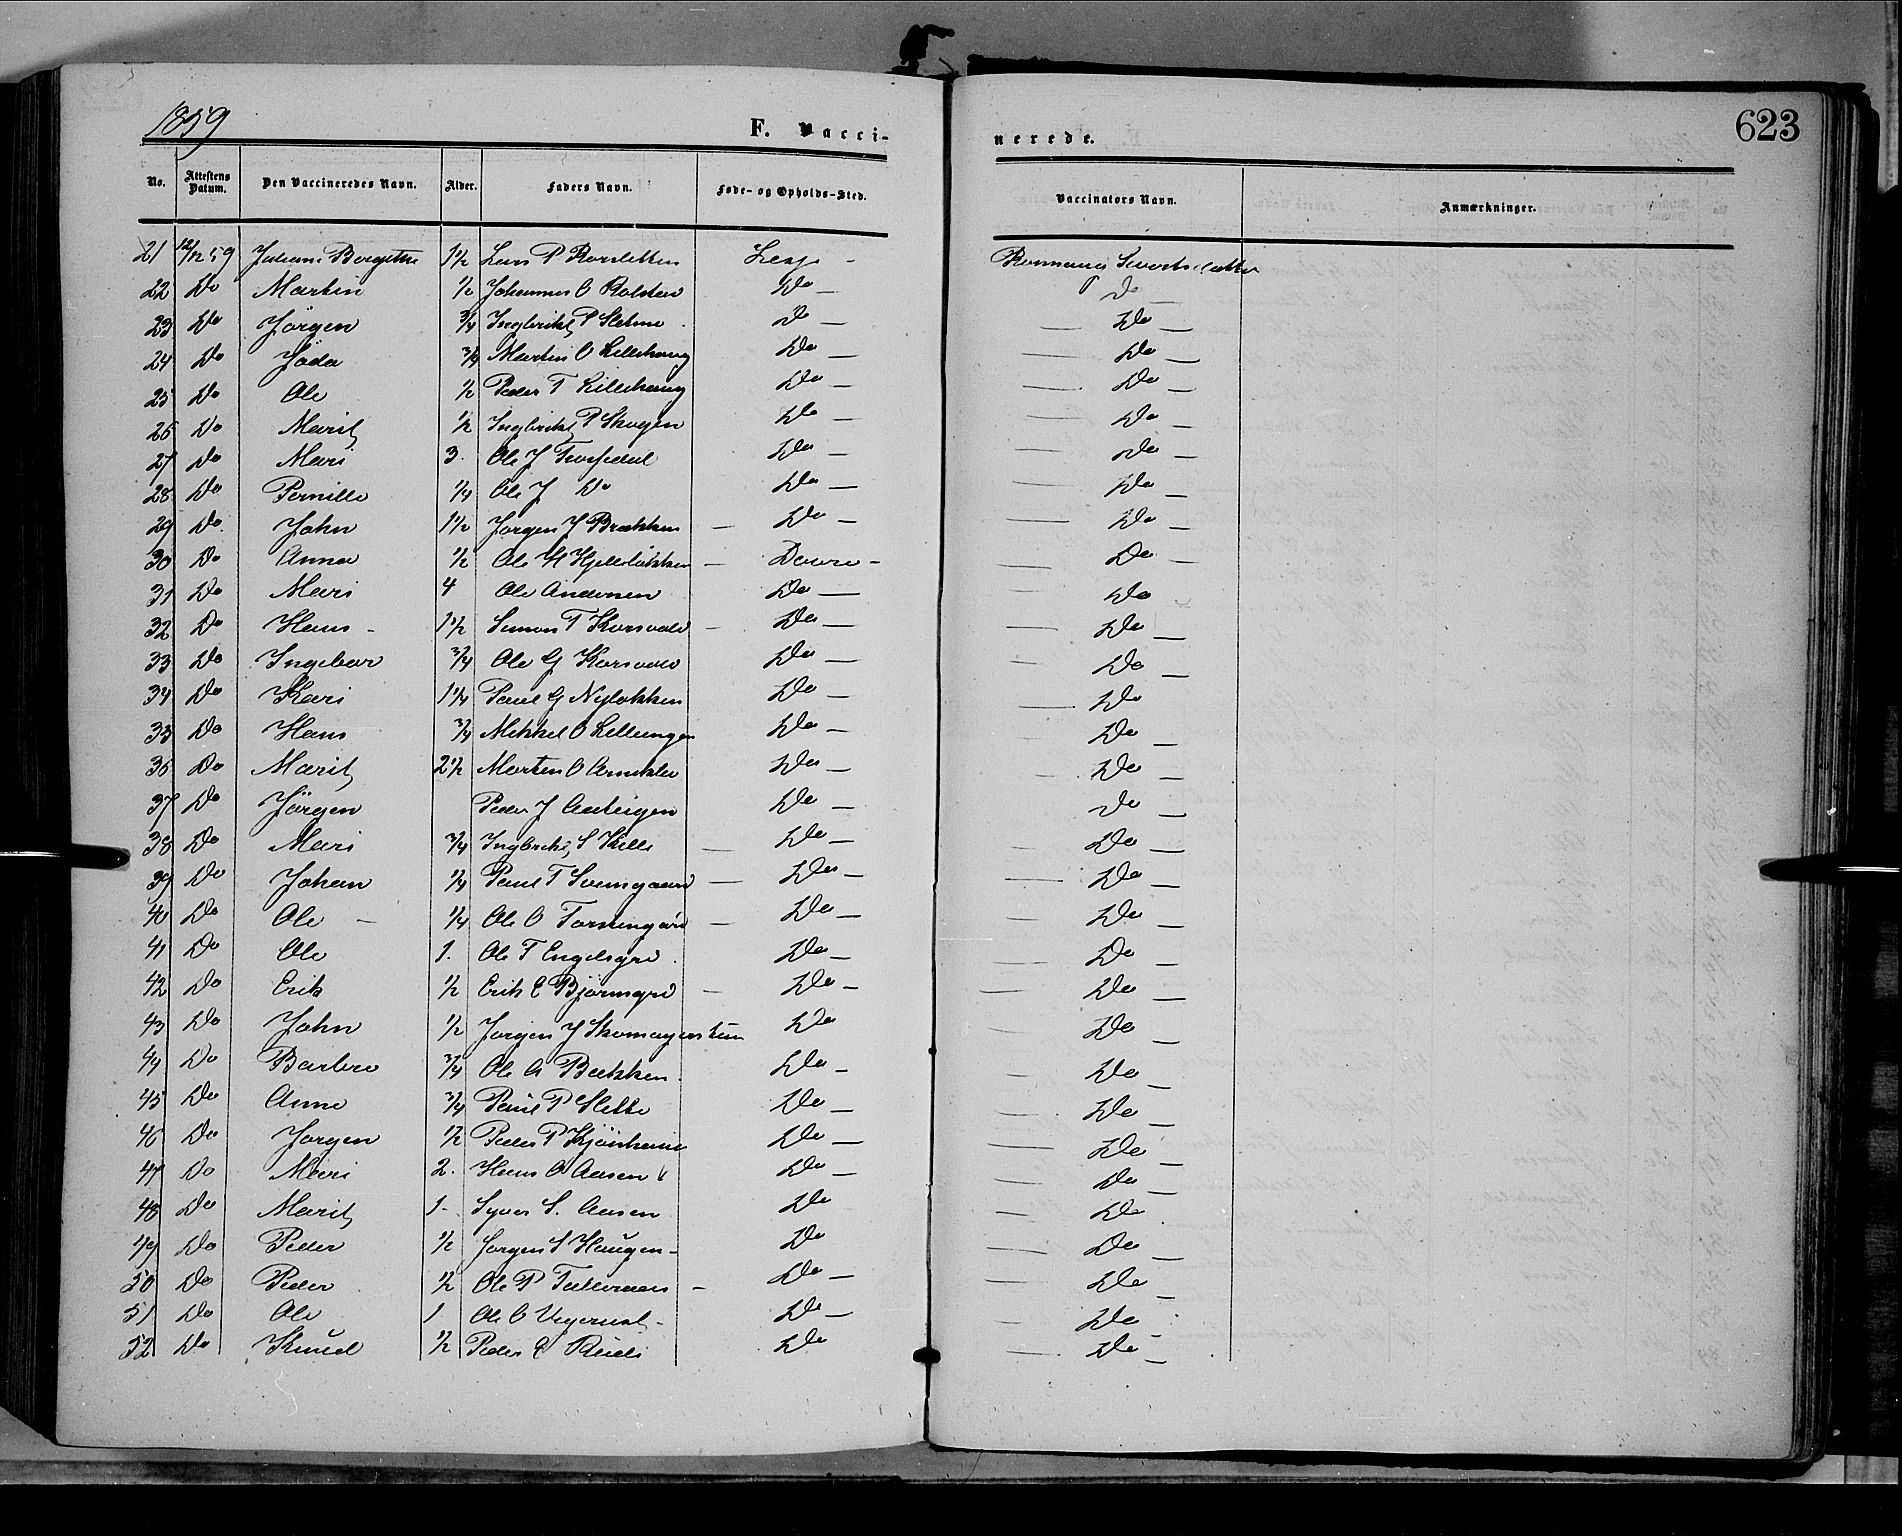 1859
F. Vacci-
nerede.
623
No. Attestens Datum. Den Vaccineredes Navn. Alder. Faders Navn. Føde- og Opholds-Sted. Vaccinators Navn. Anmærkninger.
21 12/12 59 1 1/2 Lars P Lesje
22 Do Martin 1/2 Johannes O Do — Do —
23 Do Jörgen 3/4 Ingbrikt P Do — — Do —
24 Do 3/4 Martin O Lillehaug Do — — Do —
25 Do Ole 1/2 Peder T Lillehaug Do — — Do —
26 Do Marit 1/2 Ingbrikt P Skogen Do — — Do —
27 Do Mari 3. Ole J Do — — Do —
28 Do Pernille 1/4 Ole J Do Do — — Do —
29 Do John 1 1/2 Jörgen J Brækken — Do — — Do —
30 Do Anna 1/2 Ole H Hjelleløkken — Dovre — — Do —
31 Do Mari 4 Ole Andersen Do — — Do
32 Do Hans - 1 1/2 Simon T Korsvold — Do — — Do —
33 Do Ingebor 3/4 Ole G Korsvold Do — — Do
34 Do Kari 1 1/4 Paul G Nyløkken Do — — Do
35 Do Hans 3/4 Mikkel O Do — — Do —
36 Do Marit 2 1/2 Morten O Do — — Do —
37 Do Jörgen Peder J Do — — Do —
38 Do Mari 3/4 Ingbrikt S Kille — Do — — Do —
39 Do Johan 1/4 Paul T — Do — — Do —
40 Do Ole — 1/4 Ole O — Do — — Do —
41 Do Ole 1. Ole T Engelsgrd. Do — — Do —
42 Do Erik 1/2 Erik E Bjørnsgrd — Do — — Do —
43 Do John 1/2 Jörgen J Do — Do —
44 Do Barbro 3/4 Ole A Bækken. Do — — Do —
45 Do Anne 3/4 Paul P Slette Do — — Do —
46 Do Jorgen 1/2 Peder P Do — — Do —
47 Do Mari 2. Hans O Aasen Do — — Do —
48 Do Marit 1. Syver S. Aasen Do — Do —
49 Do Peder 1/2 Jorgen S Haugen - Do — Do —
50 Do Peder 1/2 Ole P — Do — — Do —
51 Do Ole 1 Ole O Do — Do
52 Do Knud 1/2 Peder E Do — Do —